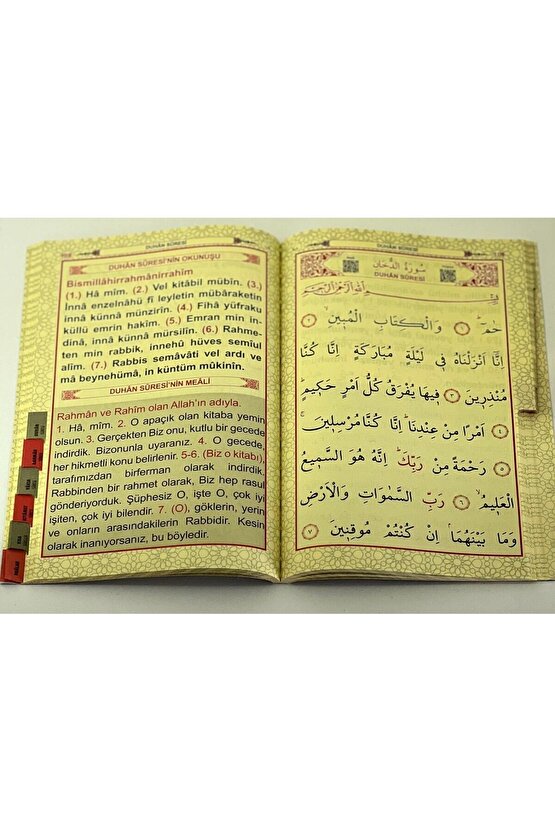 DUHÂN SÛRESİ
DUHÂN SÛRESİ'NİN OKUNUŞU
Bismillâhirrahmânirrahîm
(1.) Hâ mîm. (2.) Vel kitâbil mübîn. (3.)
İnnâ enzelnâhu fî leyletin mübâraketin
innâ künnâ münzirîn. (4.) Fîhâ yüfraku
küllü emrin hakîm. (5.) Emran min in-
dinâ, innâ künnâ mürsilîn. (6.) Rahme-
ten min rabbik, innehû hüves semîul
alîm. (7.) Rabbis semâvâti vel ardı ve
mâ beynehümâ, in küntüm mûkinîn.
DUHÂN SÛRESİ'NİN MEÂLİ
Rahmân ve Rahîm olan Allah'ın adıyla.
1. Hâ, mîm. 2. O apaçık olan kitaba yemin
olsun. 3. Gerçekten Biz onu, kutlu bir gecede
indirdik. Bizonunla uyaranız. 4. O gecede,
her hikmetli konu belirlenir. 5-6. (Biz o kitabı),
tarafımızdan birferman olarak indirdik.
Rabbinden bir rahmet olarak, Biz hep rasul
gönderiyorduk. Şüphesiz O, işte O, çok iyi
işiten, çok iyi bilendir. 7. (O), göklerin, yerin
ve onların arasındakilerin Rabbidir. Kesin
olarak inanıyorsanız, bu böyledir.
DUHÂN SÛRESİ
سُورَةُ الدُّخَانِ
DUHÂN SÛRESİ
بِسْمِ اللّٰهِ الرَّحْمٰنِ الرَّحِيمِ
حٰمٓ ۚ ١ وَالْكِتَابِ الْمُبِينِۙ ٢
اِنَّٓا اَنْزَلْنَاهُ ف۪ي لَيْلَةٍ مُبَارَكَةٍ اِنَّا كُنَّا
مُنْذِر۪ينَ ٣ ف۪يهَا يُفْرَقُ كُلُّ اَمْرٍ حَك۪يمٍۙ
٤ اَمْرًا مِنْ عِنْدِنَاۜ اِنَّا كُنَّا مُرْسِل۪ينَۚ
٥ رَحْمَةً مِنْ رَبِّكَۜ اِنَّهُ هُوَ السَّم۪يعُ
الْعَل۪يمُۙ ٦ رَبِّ السَّمٰوَاتِ وَالْاَرْضِ
وَمَا بَيْنَهُمَاۢ اِنْ كُنْتُمْ مُوقِن۪ينَ ٧